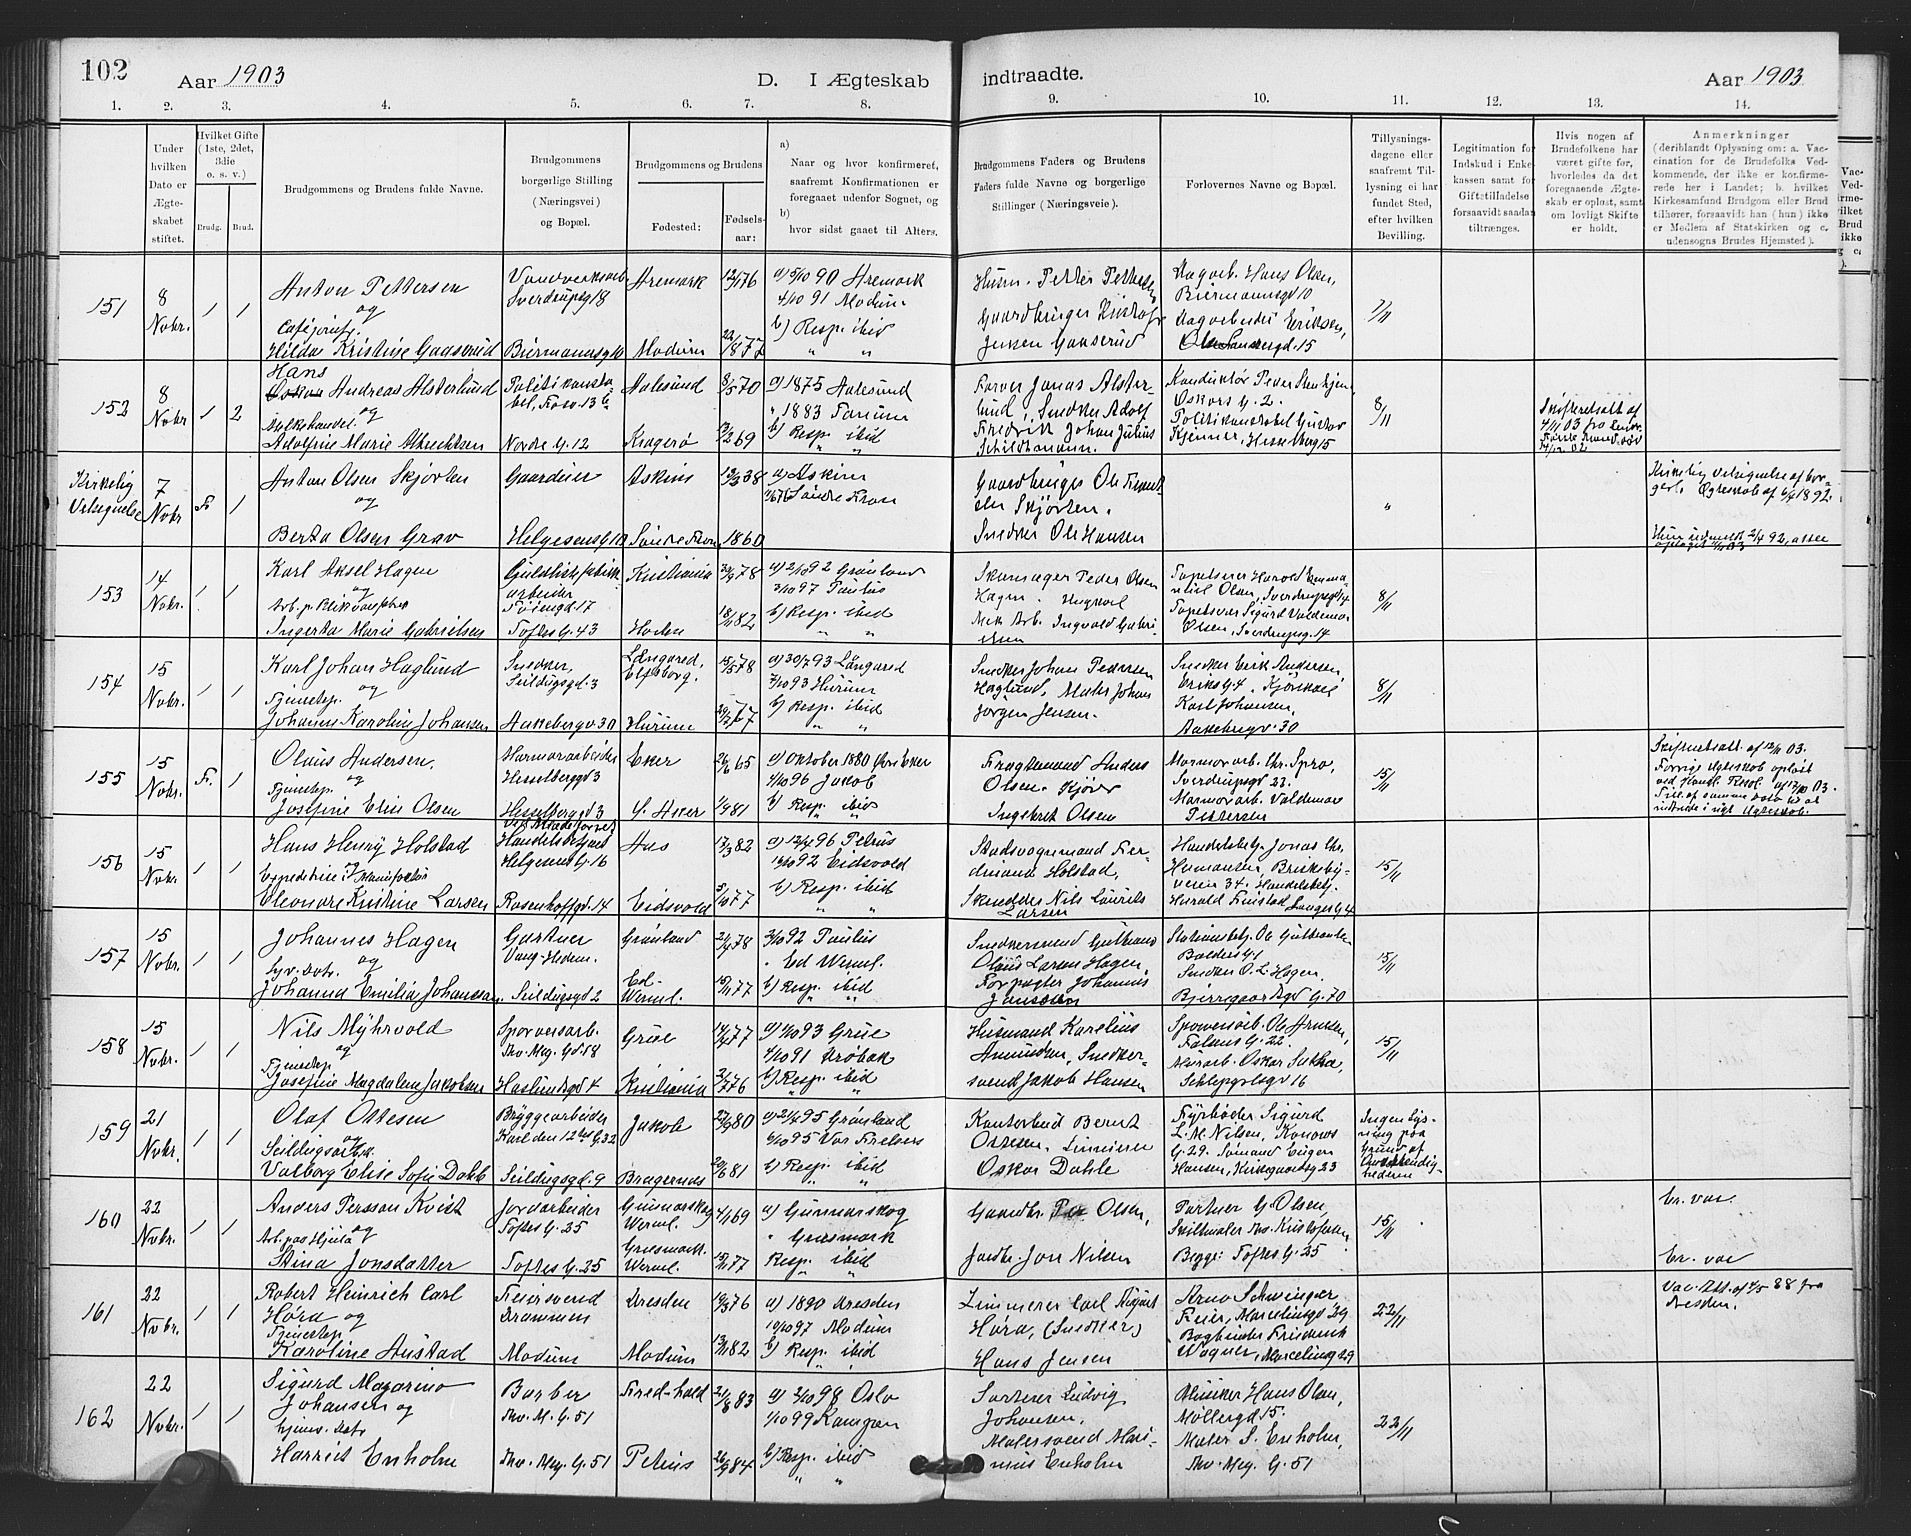 102
Aar 1903
D. I Ægteskab indtraadte.
Aar 1903
1. 2. 3. 4. 5. 6. 7. 8. 9. 10. 11. 12. 13. 14.
Under hvilken Dato er Ægteskabet stiftet.
Hvilket Gifte (1ste, 2det, 3die o. s. v.)
Brudg. Brud.
Brudgommens og Brudens fulde Navne.
Brudgommens borgerlige Stilling (Næringsvei) og Bopæl.
Brudgommens og Brudens
Fødested: Fødselsaar:
a) Naar og hvor konfirmeret, saafremt Konfirmationen er foregaaet udenfor Sognet, og
b) hvor sidst gaaet til Alters.
Brudgommens Faders og Brudens Faders fulde Navne og borgerlige Stillinger (Næringsveie).
Forlovernes Navne og Bopæl.
Tillysningsdagene eller saafremt Tillysning ei har fundet Sted, efter hvilken Bevilling.
Legitimation for Indskud i Enkekassen samt for Giftetilladelse forsaavidt saadan tiltrænges.
Hvis nogen af Brudefolkene har været gifte før, hvorledes da det foregaaende Ægteskab er opløst, samt om lovligt Skifte er holdt.
Anmerkninger (deriblandt Oplysning om: a. Vaccination for de Brudefolks Vedkommende, der ikke er konfirmerede her i Landet; b. hvilket Kirkesamfund Brudgom eller Brud tilhører, forsaavidt han (hun) ikke er Medlem af Statskirken og c. udensogns Brudes Hjemsted).
151
8 Novbr.
1 1
Anton Pettersen
og
Hilda Kristine Gaaserud
Sverdrupsg 18
Biermannsg 10
Aremark
Modum
12/1 76
a) 5/10 90 Aremark
4/10 91 Modum
b) Resp. ibid
Husm. Petter Pettersen
Gaardbruger Kristof
Jensen Gaaserud
Dagarb. Hans Olsen,
Biermannsgd 10
Dagarbeider Eriksen,
152
8 Novbr
1 2
Hans
Andreas Alsterlund
og
Adolfine Marie
Politikonsta-
bel,
Nordre G. 12
Aalesund
Kragerø
8/5 70
a) 1875 Aalesund
1883
b) Resp. ibid
Farver Jonas Alster-
lund, Snedker Adolf
Fredrik Johan Julius
Konduktør Peder
Oskars G. 2.
Politikonstabel Gustav
8/11
Skifteretsatt af
Kirkelig
Velsignelse
7 Novbr
Fr. 1
Anton Olsen Skjørten
og
Berta Olsen Grav
Gaardeier
Helgesensg 10
Askim
Søndre
38
1860
a) Askim
Gaardbruger Ole
Skjørten.
Snedker Ole Hansen
Kirkelig Velsignelse af bor-
gerl. Ægteskab af 1892.
153
14 Novbr.
1 1
Karl Aksel Hagen
og
Ingerta Marie Gabrielsen
arbeider
Tøiengd. 17
Toftes G. 43
Kristiania
78
18/1 82
a) 2/10 92 Grønland
3/10 97 Paulus
b) Resp. ibid
Skomager Peder Olsen
Hagen.
Mek Arb. Ingvald Gabri-
elsen
Tapetserer Harald
Olsen, Sverdrupsgd 4
Tapetserer Sigurd Valdemar
Olsen, Sverdrupsg. 14
8/11
154
15 Novbr.
1 1
Karl Johan Haglund
og
Tjenestep.
Johanne Karoline Johansen
Snedker,
Seildugsgd. 3
Aakebergv. 30
Långared,
Elfsborg.
Hurum
15/5 78
77
a) 30/7 93 Långared
7/10 93 Hurum
b) Resp. ibid
Snedker Johan Pedersen
Haglund, Maler Johan
Jørgen Jensen.
Snedker Erik Andersen,
Eriks G. 4.
Karl Johansen,
Aakebergv. 30
8/11
155
15 Novbr.
Fr. 1
Olaus Andersen.
og
Tjenestep.
Josefine Eline Olsen
Marmorarbeider
Hesselbergd 3
Hesselbergsgd 3
Eker
V. Aker
26/6 65
81
a) Oktober 1880 Øvre Eker
4/10 96 Jakob
b) Resp. ibid
Fragtemand Anders
Olsen
Ingebret Olsen
Marmorarb. Chr. Spro,
Sverdrupsgd. 23.
Marmorarb. Valdemar
Pettersen
15/11
Skifteretsatt. af 12/11 03.
Forrige Ægteskab opløst
156
15 Novbr.
1 1
Hans Henry Holstad
og
Eleonore Kristine Larsen
Helgesens G. 16
Rosenhoffgd. 14
Aas
Eidsvold
13/3 82
5/10 77
a) 12/4 96 Petrus
92 Eidsvold
b) Resp. ibid
Stadsvognmand Fer-
dinand Holstad,
Skrædder Nils Laurits
Larsen
Handelsbetj. Jonas Chr.
Hermansen, Briskeby-
veien 34. Handelsbetj.
Harald Finstad Langes G. 4
15/11
157
15 Novbr.
1 1
Johannes Hagen
og
Johanna Emilia Johansson
Gartner
Vang Hedem.
Seildugsgd 2
Grønland
Ed-
Werml.
78
15/11 77
3/10 92 Paulus
" Ed Werml.
b) Resp. ibid
Snedkersvend Gulbrand
Olaus Larsen Hagen,
Forpagter Johannes
Janssen
Stationsbetj. Ole Gulbrandsen
Balders G. 1
Snedker O. L. Hagen,
Bjerregaardsgd G. 70
15/11
158
15 Novbr.
1 1
Nils Myhrvold
og
Tjenestep.
Josefine Magdalena Jakobsen
Sporveisarb.
Thv. Meg. Gd. 58
Haslundsgd 4
Grue
Kristiania
14/4 77
76
a) 1/10 93 Grue
4/10 91 Drøbak
b) Resp. ibid
Husmand Karelius
Amundsen, Snedker-
svend Jakob Hansen
Sporveisarb. Ole Arnesen,
Falsens G. 22.
Murarb. Oskar
Schleppgrellsgd 16
15/11
159
21 Novbr.
1 1
Olaf Ottesen
og
Seildugsarb.
Valborg Elise Sofie Dahle
Bryggearbeider
Karl den 12tes G. 32
Seildugsgd. 9
Jakob
Bragernes
80
81
a) 21/4 95 Grønland
6/10 95 Vor Frelsers
b) Resp. ibid
Kontorbud Bernt
Ottesen.
Oskar Dahle
Fyrbøder Sigurd
L. M. Nilsen, Konows
G. 29. Sømand Eugen
Hansen, Kirkegaardsg 23
Ingen lys-
ning paa
Grund af
160
22 Novbr.
1 1
Anders Persson Kvist
Arb. paa Hjula og
Stina Jonsdatter
Jordarbeider
Toftes G. 25
Toftes G. 25
Gunnarskog
Werml.
Gräsmark.
Werml.
4/1 69
77
a) Gunnarskog
" Gräsmark
Resp. ibid
Gaardbr. Per Olsen,
Jordbr. Jon Nilsen
Portner G. Olsen,
Skiltmaler Ths. Kristofersen
Begge: Toftes G. 25
15/11
Er. vac.
Er. vac
161
22 Novbr.
1 1
Robert Heinrich Carl
Höra og
Tjenestep.
Karoline Austad
Feiersvend
Drammen
Modum
Dresden
Modum
76
82
a) 1890 Dresden
10/10 97 Modum
b) Resp. ibid
Zimmerer Carl August
Höra, (Snedker)
Hans Jensen
Arno Schwinger
Feier, Marcelinsgd 29
Bogbinder Friedrich
Wagner, Marcelinsgd 29
22/11
Vac. Att. af 2/5 88 fra
Dresden.
162
22 Novbr.
1 1
Sigurd Magarino
Johansen og
Harriet Enholm
Barber
Thv. M. G. 51
Thv. Meg. G. 51
Fred-hald
Petrus
21/8 83
26/9 84
a) 2/10 98 Oslo
1/10 99 Kampen
b) Resp. ibid
Sorterer Ludvig
Johansen,
Malersvend Mari-
nius Enholm
Musiker Hans Olsen,
Møllergd 15.
Maler S. Enholm,
Thv. Meg. G. 51
22/11